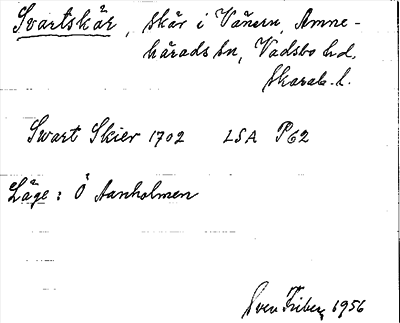 Svartskär, skär i Vänern, Amne-
härads sn, Vadsbo hd.
Skarab. l.
Swart Skier 1702 LSA P62
Läge: Ö Aanholmen
Sven Fribeg 1956